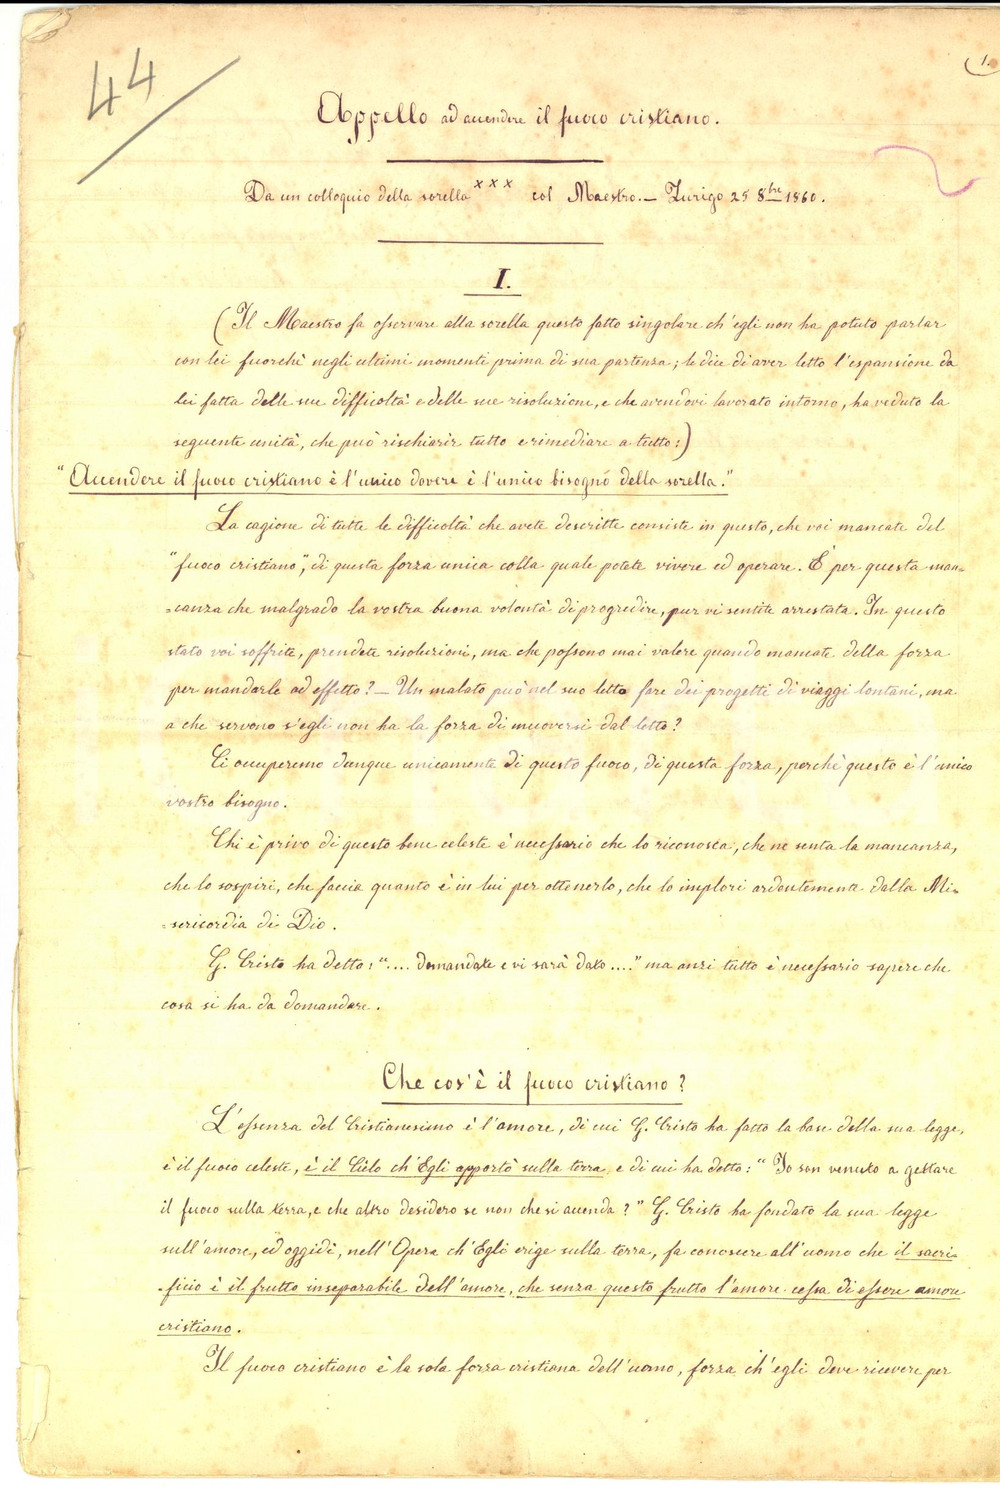 44
(1.
Appello ad accendere il fuoco cristiano.
Da un colloquio della sorella x x x col Maestro. — Zurigo 25 8bre 1860.
I.
(Il Maestro fa osservare alla sorella questo fatto singolare ch'egli non ha potuto parlar
con lei fuorchè negli ultimi momenti prima di sua partenza; le dice di aver letto l'espansione da
lei fatta delle sue difficoltà e delle sue risoluzione, e che avendovi lavorato intorno, ha veduto la
seguente unità, che può rischiarir tutto e rimediare a tutto:)
"Accendere il fuoco cristiano è l'unico dovere è l'unico bisogno della sorella."
La cagione di tutte le difficoltà che avete descritte consiste in questo, che voi mancate del
"fuoco cristiano", di questa forza unica colla quale potete vivere ed operare. È per questa man=
=canza che malgrado la vostra buona volontà di progredire, pur vi sentite arrestata. In questo
stato voi soffrite, prendete risoluzioni, ma che possono mai valere quando mancate della forza
per mandarle ad effetto? — Un malato può nel suo letto fare dei progetti di viaggi lontani, ma
a che servono s'egli non ha la forza di muoversi dal letto?
Ci occuperemo dunque unicamente di questo fuoco, di questa forza, perchè questo è l'unico
vostro bisogno.
Chi è privo di questo bene celeste è necessario che lo riconosca, che ne senta la mancanza,
che lo sospiri, che faccia quanto è in lui per ottenerlo, che lo implori ardentemente dalla Mi=
=sericordia di Dio.
G. Cristo ha detto: ".... domandate e vi sarà dato ...." ma anzi tutto è necessario sapere che
cosa si ha da domandare.
Che cos'è il fuoco cristiano?
L'essenza del Cristianesimo è l'amore, di cui G. Cristo ha fatto la base della sua legge,
è il fuoco celeste, è il Cielo ch'Egli apportò sulla terra, e di cui ha detto: "Io son venuto a gettare
il fuoco sulla terra, e che altro desidero se non che si accenda?" G. Cristo ha fondato la sua legge
sull'amore, ed oggidì, nell'Opera ch'Egli erige sulla terra, fa conoscere all'uomo che il sacri-
-ficio è il frutto inseparabile dell'amore, che senza questo frutto l'amore cessa di essere amore
cristiano.
Il fuoco cristiano è la sola forza cristiana dell'uomo, forza ch'egli deve ricevere per